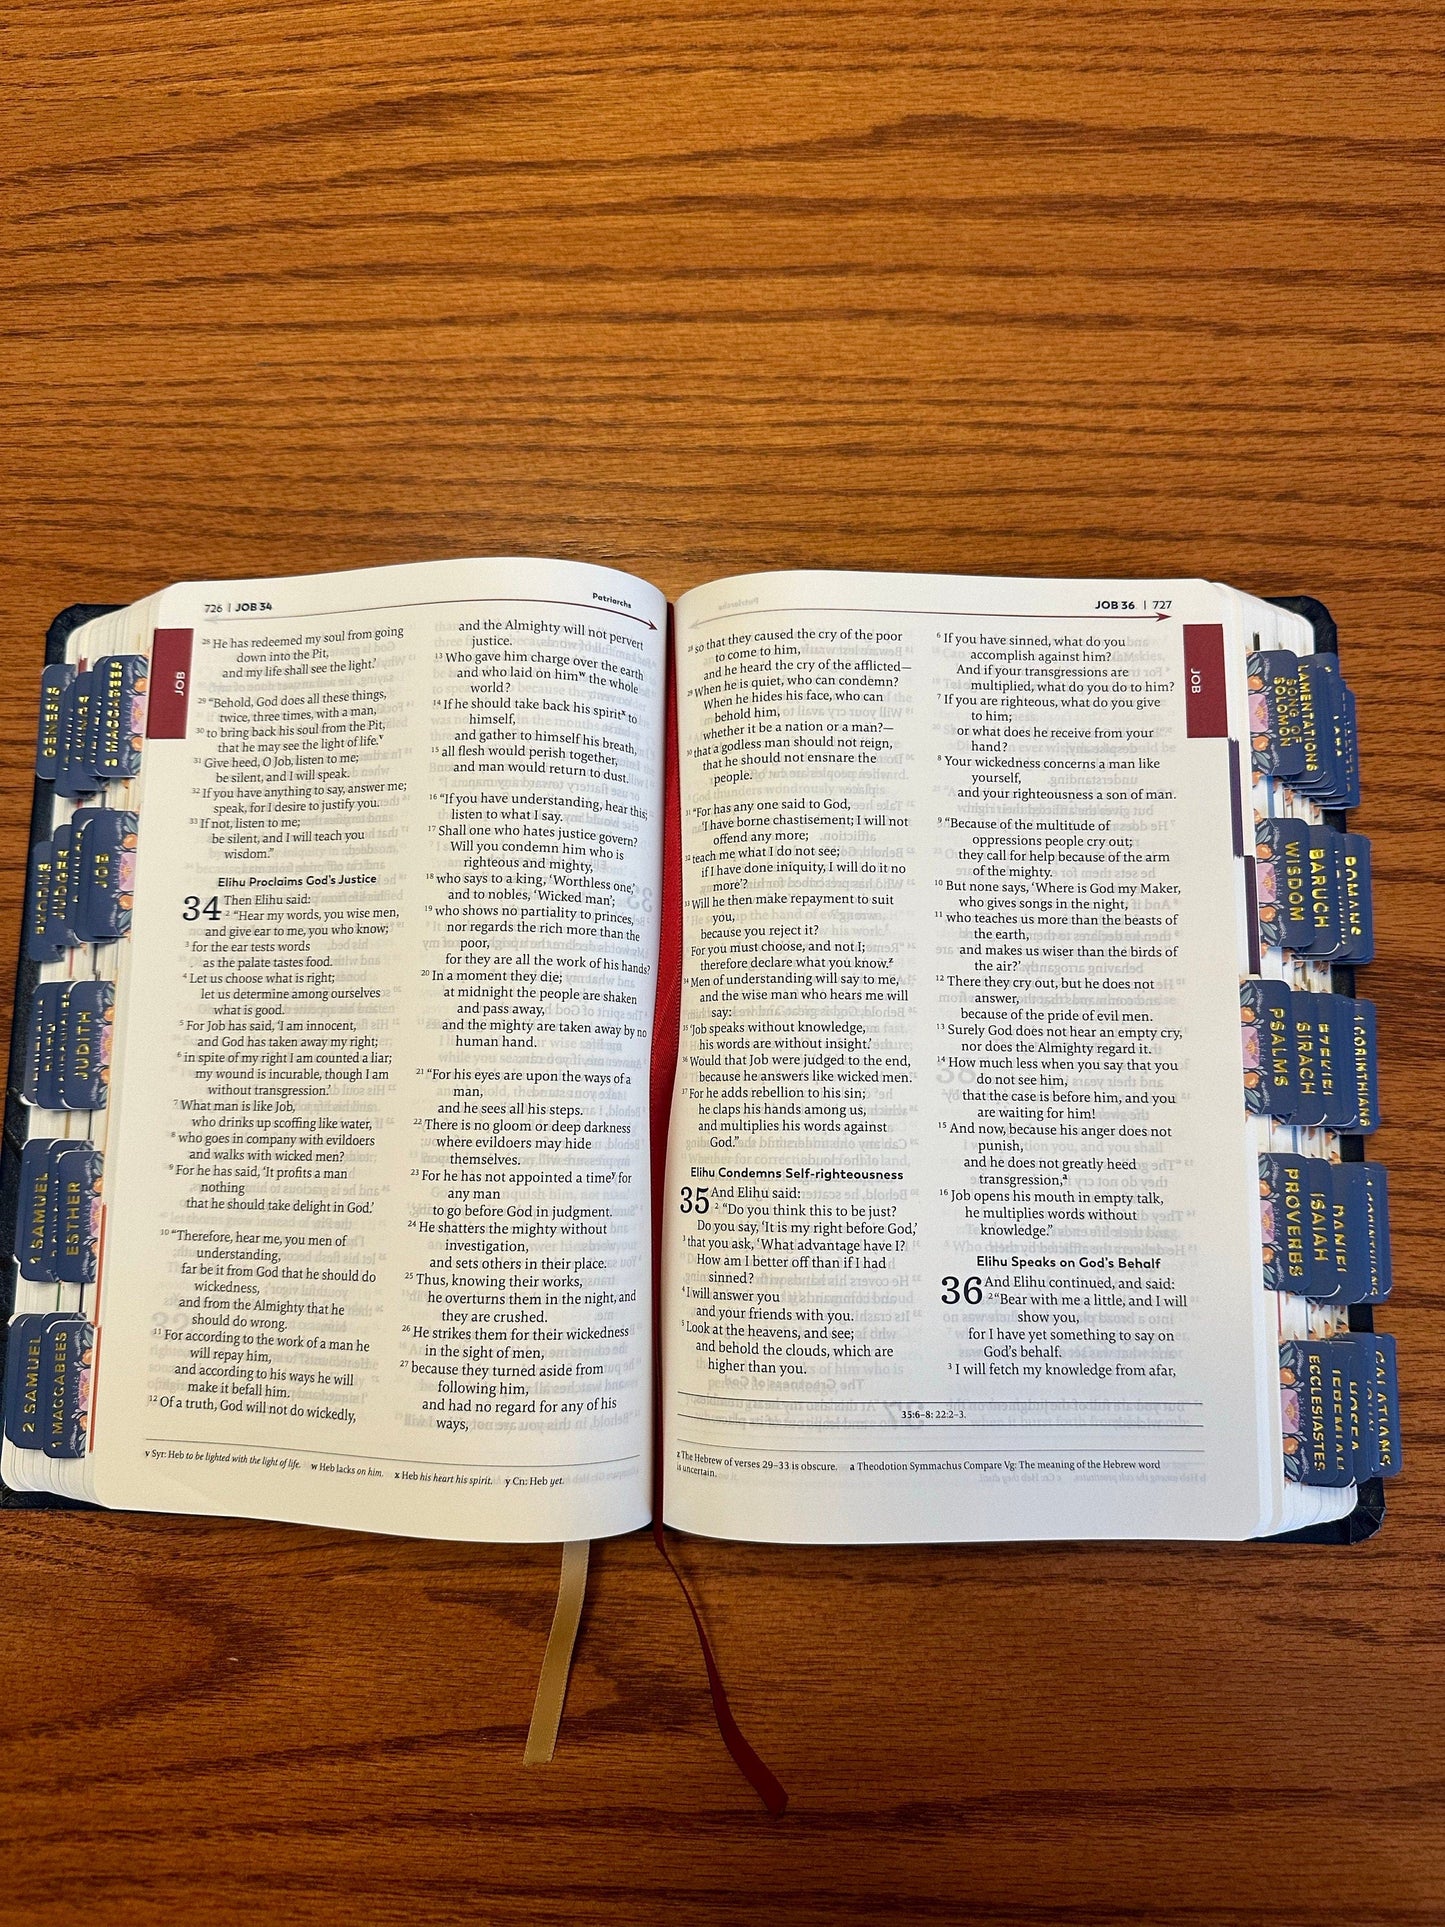 726 | JOB 34
Patriarchs
JOB
28 He has redeemed my soul from going
down into the Pit,
and my life shall see the light.’
29 “Behold, God does all these things,
twice, three times, with a man,
30 to bring back his soul from the Pit,
that he may see the light of life.v
31 Give heed, O Job, listen to me;
be silent, and I will speak.
32 If you have anything to say, answer me;
speak, for I desire to justify you.
33 If not, listen to me;
be silent, and I will teach you
wisdom.”
Elihu Proclaims God’s Justice
34 Then Elihu said:
2 “Hear my words, you wise men,
and give ear to me, you who know;
3 for the ear tests words
as the palate tastes food.
4 Let us choose what is right;
let us determine among ourselves
what is good.
5 For Job has said, ‘I am innocent,
and God has taken away my right;
6 in spite of my right I am counted a liar;
my wound is incurable, though I am
without transgression.’
7 What man is like Job,
who drinks up scoffing like water,
8 who goes in company with evildoers
and walks with wicked men?
9 For he has said, ‘It profits a man
nothing
that he should take delight in God.’
10 “Therefore, hear me, you men of
understanding,
far be it from God that he should do
wickedness,
and from the Almighty that he
should do wrong.
11 For according to the work of a man he
will repay him,
and according to his ways he will
make it befall him.
12 Of a truth, God will not do wickedly,
and the Almighty will not pervert
justice.
13 Who gave him charge over the earth
and who laid on himw the whole
world?
14 If he should take back his spiritx to
himself,
and gather to himself his breath,
15 all flesh would perish together,
and man would return to dust.
16 “If you have understanding, hear this;
listen to what I say.
17 Shall one who hates justice govern?
Will you condemn him who is
righteous and mighty,
18 who says to a king, ‘Worthless one,’
and to nobles, ‘Wicked man’;
19 who shows no partiality to princes,
nor regards the rich more than the
poor,
for they are all the work of his hands?
20 In a moment they die;
at midnight the people are shaken
and pass away,
and the mighty are taken away by no
human hand.
21 “For his eyes are upon the ways of a
man,
and he sees all his steps.
22 There is no gloom or deep darkness
where evildoers may hide
themselves.
23 For he has not appointed a timey for
any man
to go before God in judgment.
24 He shatters the mighty without
investigation,
and sets others in their place.
25 Thus, knowing their works,
he overturns them in the night, and
they are crushed.
26 He strikes them for their wickedness
in the sight of men,
27 because they turned aside from
following him,
and had no regard for any of his
ways,
v Syr: Heb to be lighted with the light of life. w Heb lacks on him. x Heb his heart his spirit. y Cn: Heb yet.
JOB 36 | 727
JOB
28 so that they caused the cry of the poor
to come to him,
and he heard the cry of the afflicted—
29 When he is quiet, who can condemn?
When he hides his face, who can
behold him,
whether it be a nation or a man?—
30 that a godless man should not reign,
that he should not ensnare the
people.
31 “For has any one said to God,
‘I have borne chastisement; I will not
offend any more;
32 teach me what I do not see;
if I have done iniquity, I will do it no
more’?
33 Will he then make repayment to suit
you,
because you reject it?
For you must choose, and not I;
therefore declare what you know.z
34 Men of understanding will say to me,
and the wise man who hears me will
say:
35 ‘Job speaks without knowledge,
his words are without insight.’
36 Would that Job were judged to the end,
because he answers like wicked men.
37 For he adds rebellion to his sin;
he claps his hands among us,
and multiplies his words against
God.”
Elihu Condemns Self-righteousness
35 And Elihu said:
2 “Do you think this to be just?
Do you say, ‘It is my right before God,’
3 that you ask, ‘What advantage have I?
How am I better off than if I had
sinned?’
4 I will answer you
and your friends with you.
5 Look at the heavens, and see;
and behold the clouds, which are
higher than you.
6 If you have sinned, what do you
accomplish against him?
And if your transgressions are
multiplied, what do you do to him?
7 If you are righteous, what do you give
to him;
or what does he receive from your
hand?
8 Your wickedness concerns a man like
yourself,
and your righteousness a son of man.
9 “Because of the multitude of
oppressions people cry out;
they call for help because of the arm
of the mighty.
10 But none says, ‘Where is God my Maker,
who gives songs in the night,
11 who teaches us more than the beasts of
the earth,
and makes us wiser than the birds of
the air?’
12 There they cry out, but he does not
answer,
because of the pride of evil men.
13 Surely God does not hear an empty cry,
nor does the Almighty regard it.
14 How much less when you say that you
do not see him,
that the case is before him, and you
are waiting for him!
15 And now, because his anger does not
punish,
and he does not greatly heed
transgression,a
16 Job opens his mouth in empty talk,
he multiplies words without
knowledge.”
Elihu Speaks on God’s Behalf
36 And Elihu continued, and said:
2 “Bear with me a little, and I will
show you,
for I have yet something to say on
God’s behalf.
3 I will fetch my knowledge from afar,
35:6–8: 22:2–3.
z The Hebrew of verses 29–33 is obscure. a Theodotion Symmachus Compare Vg: The meaning of the Hebrew word
is uncertain.
GENESIS
2 MACCABEES
JUDGES
JOB
JUDITH
1 SAMUEL
ESTHER
2 SAMUEL
1 MACCABEES
SONG OF
SOLOMON
LAMENTATIONS
WISDOM
BARUCH
ROMANS
PSALMS
SIRACH
EZEKIEL
1 CORINTHIANS
PROVERBS
ISAIAH
DANIEL
ECCLESIASTES
JEREMIAH
HOSEA
GALATIANS